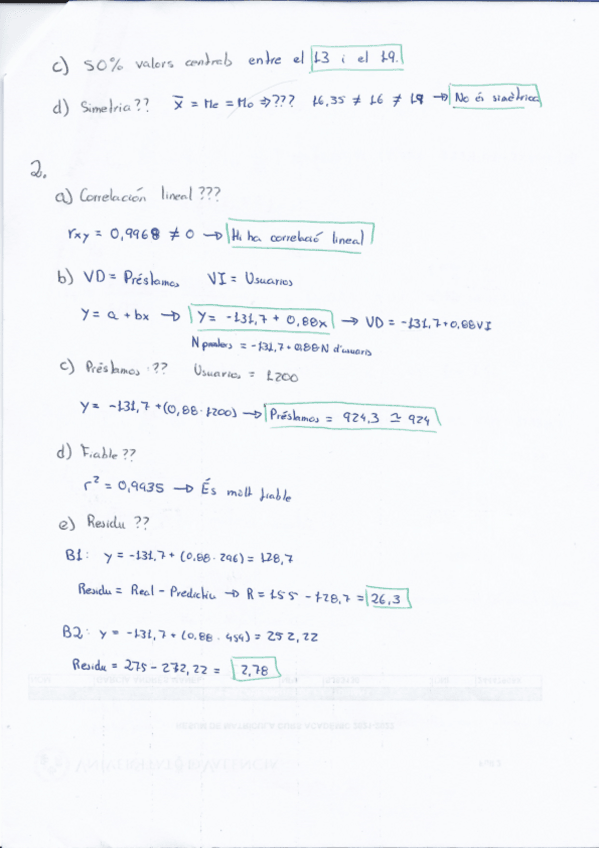 c) 50% valors centrals entre el 13 i el 19.
d) Simetria ?? x̄ = Me = Mo => ??? 16,35 ≠ 16 ≠ 19 → No és simètrica
2.
a) Correlación lineal ???
rxy = 0,9968 ≠ 0 → Hi ha correlació lineal
b) VD = Préstamos VI = Usuarios
y = a + bx → y = -131,7 + 0,88x → VD = -131,7 + 0,88 VI
= -131,7 + 0,88 N d'usuaris
c) Préstamos ?? Usuarios = 1200
y = -131,7 + (0,88 · 1200) → Préstamos = 924,3 ≃ 924
d) Fiable ??
r² = 0,9935 → És molt fiable
e) Residu ??
B1: y = -131,7 + (0,88 · 296) = 128,7
Residu = Real - Predictiu → R = 155 - 128,7 = 26,3
B2: y = -131,7 + (0,88 · 454) = 252,22
Residu = 275 - 272,22 = 2,78